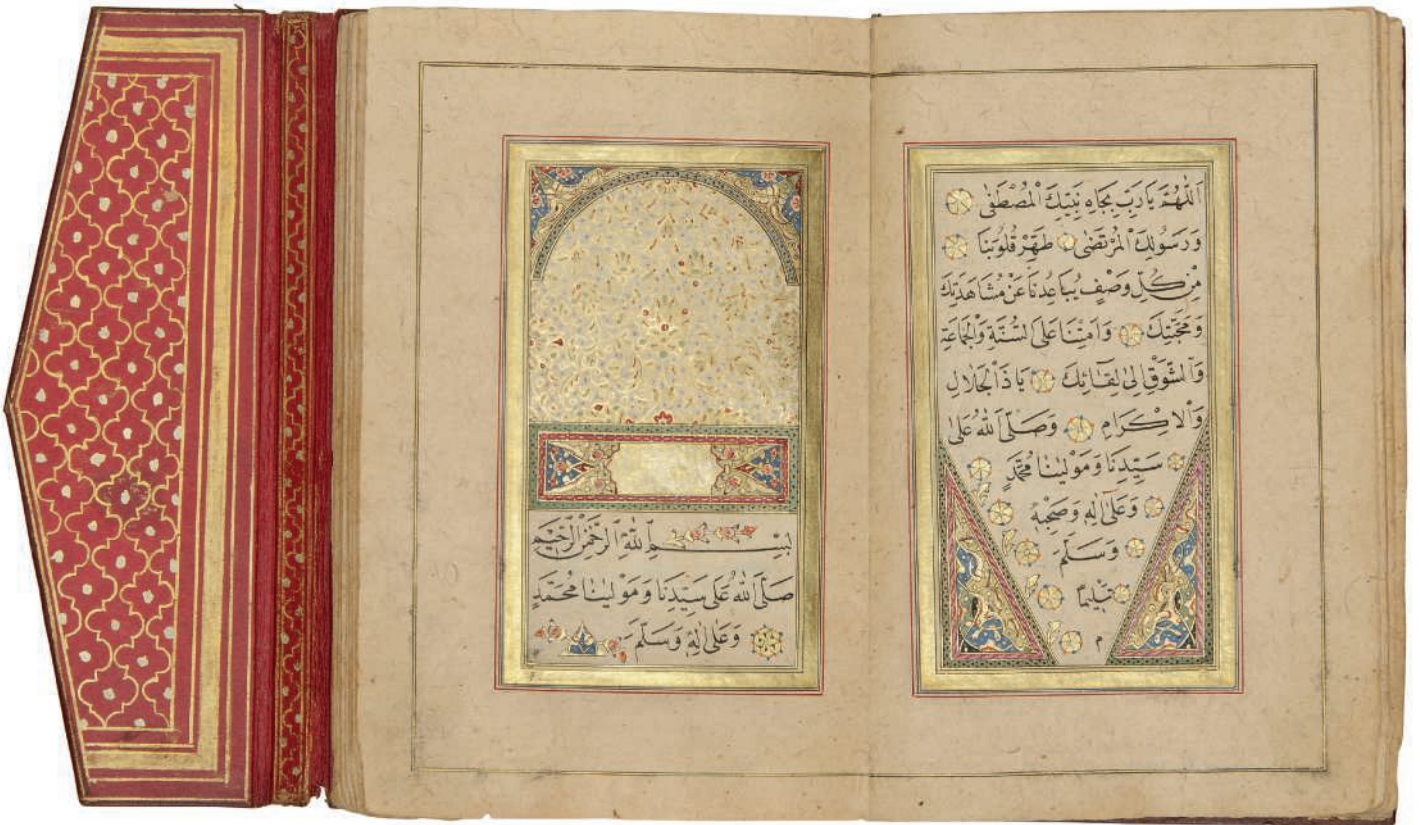 اَللّٰهُمَّ يَارَبِّ بِجَاهِ نَبِيِّكَ الْمُصْطَفٰى
وَرَسُولِكَ الْمُرْتَضٰى طَهِّرْ قُلُوبَنَا
مِنْ كُلِّ وَصْفٍ يُبَاعِدُنَا عَنْ مُشَاهَدَتِكَ
وَمَحَبَّتِكَ وَاَمِتْنَا عَلَى السُّنَّةِ وَالْجَمَاعَةِ
وَالشَّوْقِ اِلٰى لِقَائِكَ يَا ذَا الْجَلَالِ
وَالْاِكْرَامِ وَصَلَّى اللّٰهُ عَلٰى
سَيِّدِنَا وَمَوْلٰينَا مُحَمَّدٍ
وَعَلٰى اٰلِهٖ وَصَحْبِهٖ
وَسَلَّمَ
تَسْلِيمًا
م
بِسْمِ اللّٰهِ الرَّحْمٰنِ الرَّحِيمِ
صَلَّى اللّٰهُ عَلٰى سَيِّدِنَا وَمَوْلٰينَا مُحَمَّدٍ
وَعَلٰى اٰلِهٖ وَسَلَّمَ